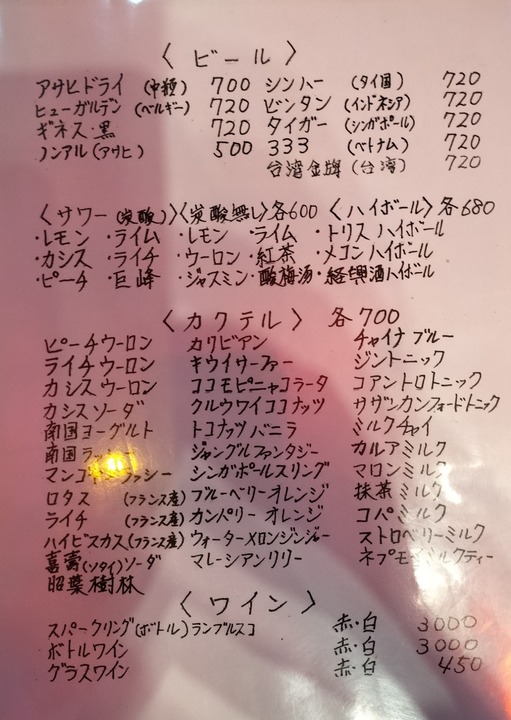 〈ビール〉
アサヒドライ (中瓶) 700 シンハー (タイ国) 720
ヒューガルデン (ベルギー) 720 ビンタン (インドネシア) 720
ギネス・黒 720 タイガー (シンガポール) 720
ノンアル(アサヒ) 500 333 (ベトナム) 720
台湾金牌 (台湾) 720
〈サワー(炭酸)〉〈炭酸無し〉各600 〈ハイボール〉各680
・レモン ・ライム ・レモン ・ライム ・トリスハイボール
・カシス ・ライチ ・ウーロン ・紅茶 ・メコンハイボール
・ピーチ ・巨峰 ・ジャスミン ・酸梅湯 ・経興酒ハイボール
〈カクテル〉 各700
ピーチウーロン カリビアン チャイナブルー
ライチウーロン キウイサーファー ジントニック
カシスウーロン ココモピニャコラータ コアントロトニック
カシスソーダ クルウワイココナッツ サザンカンフォードトニック
南国ヨーグルト トコナッツバニラ ミルクチャイ
南国ラッシー ジャングルファンタジー カルアミルク
マンゴ ラッシー シンガポールスリング マロンミルク
ロタス (フランス産) ブルーベリーオレンジ 抹茶ミルク
ライチ (フランス産) カンパリーオレンジ コパミルク
ハイビスカス(フランス産) ウォーターメロンジンジャー ストロベリーミルク
喜壽(ソタイ)ソーダ マレーシアンリリー ミルクティー
照葉樹林
〈ワイン〉
スパークリング(ボトル)ランブルスコ 赤・白 3000
ボトルワイン 赤・白 3000
グラスワイン 赤・白 450